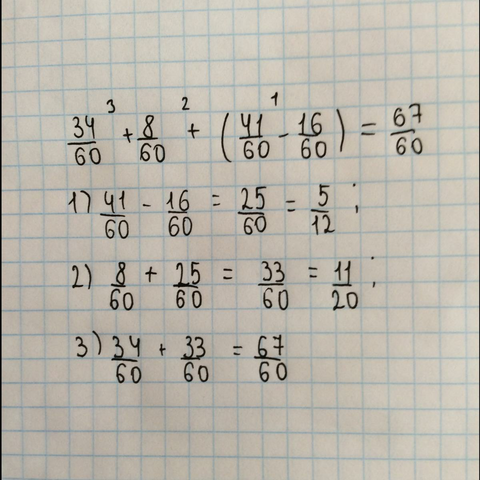 34/60 ³ + 8/60 ² + (41/60 ¹ - 16/60) = 67/60
1) 41/60 - 16/60 = 25/60 = 5/12 ;
2) 8/60 + 25/60 = 33/60 = 11/20 ;
3) 34/60 + 33/60 = 67/60